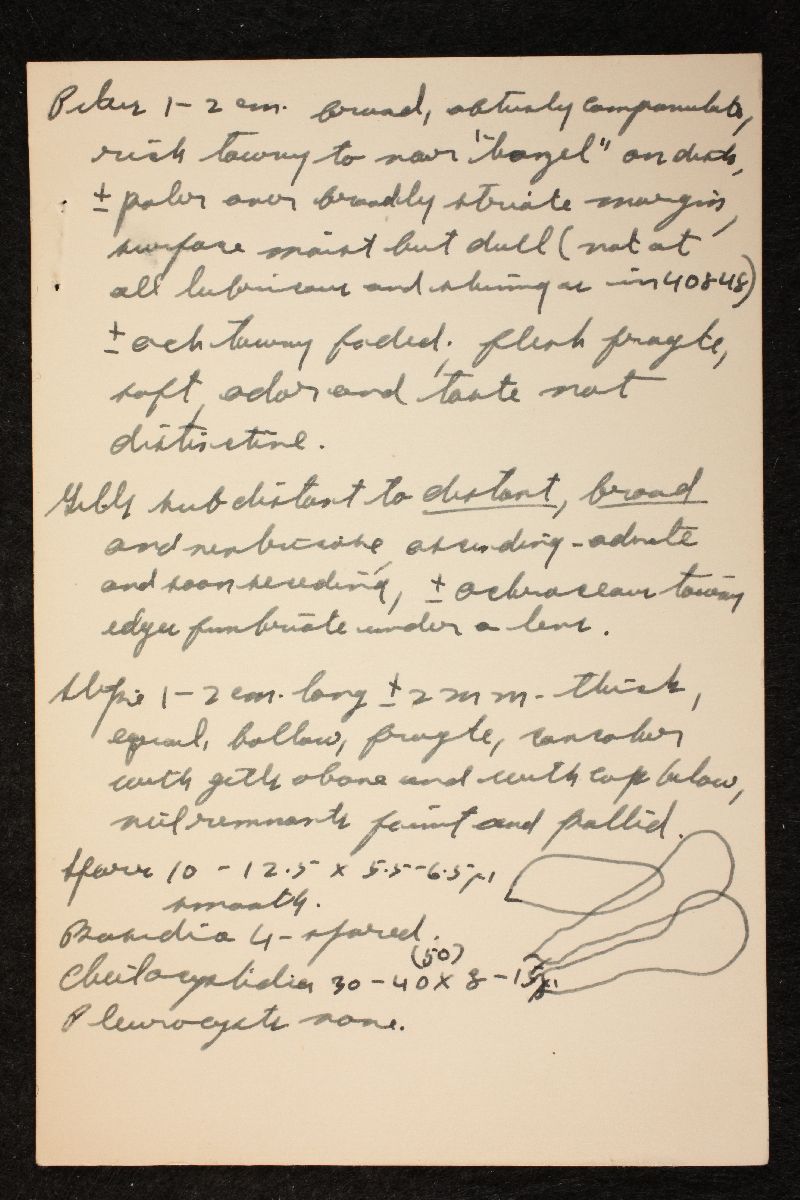 Pileus 1-2 cm. broad, obtusely companulate,
rich tawny to near "hazel" on disk,
± paler over broadly striate margin,
surface moist but dull (not at
all lubricous and shining as in 40848)
± och tawny faded; flesh fragile,
soft, odor and taste not
distinctive.
Gills subdistant to distant, broad
and ventricose, ascending-adnate
and soon seceding, ± ochraceous tawny
edges fimbriate under a lens.
Stipe 1-2 cm. long ± 2 mm. thick,
equal, hollow, fragile, concolor
with gills above and with cap below,
veil remnants faint and pallid.
Spores 10-12.5 x 5.5-6.5 µ,
smooth.
Basidia 4-spored.
(50)
Cheilocystidia 30-40 x 8-15 µ.
Pleurocysts none.